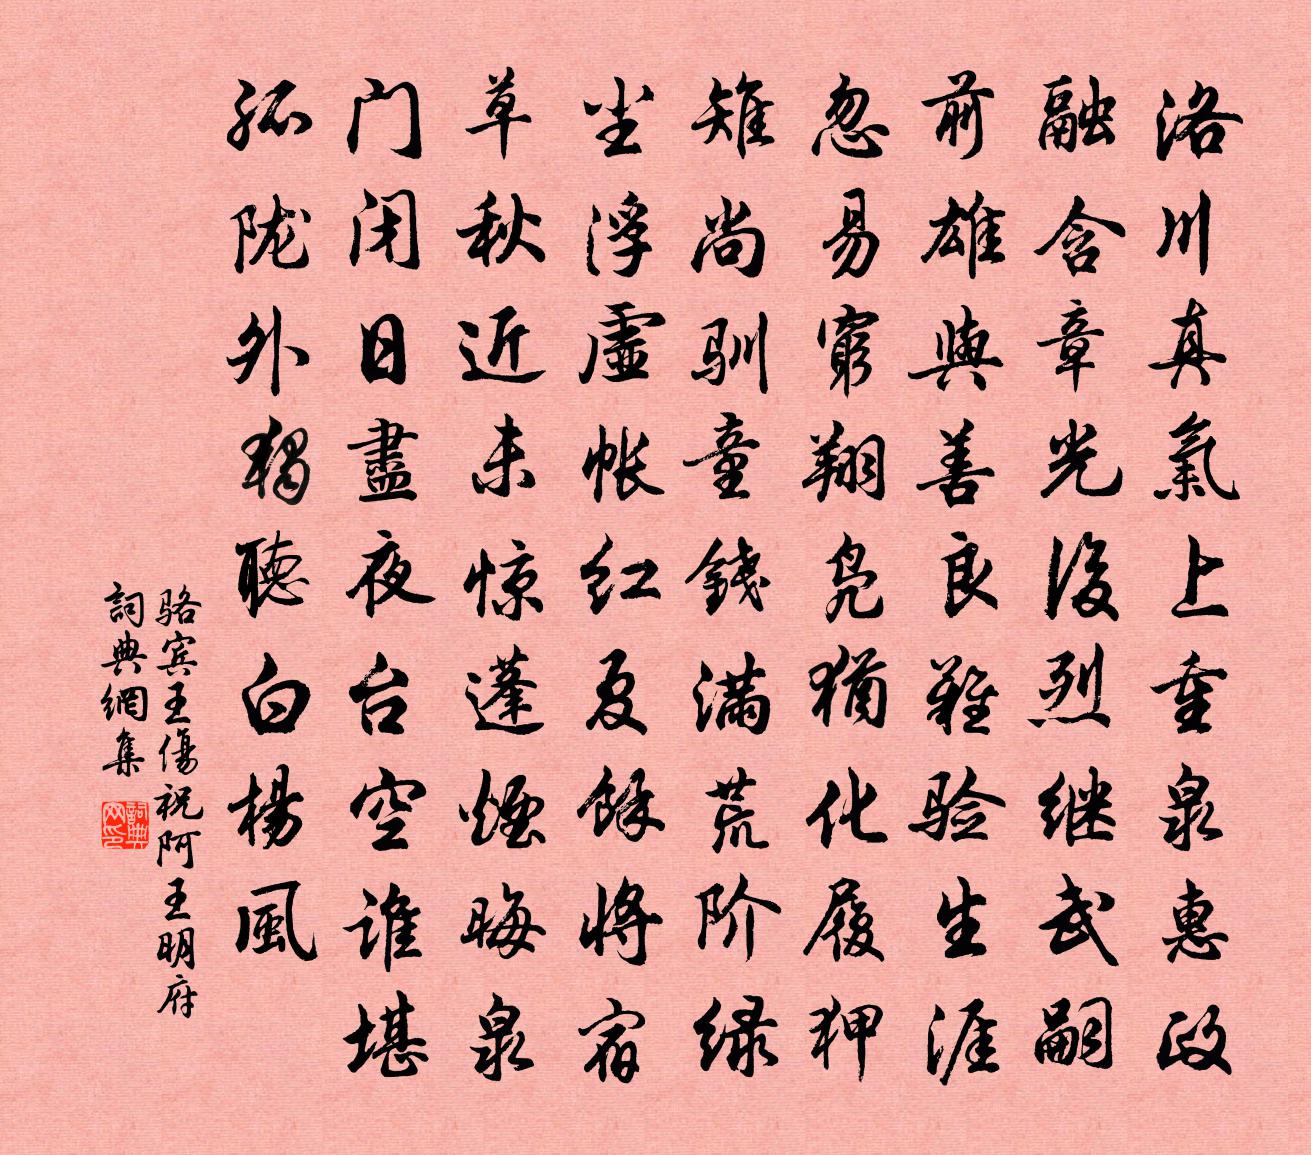 洛川真氣上重泉惠政
融含章光後烈继武嗣
前雄與善良難验生涯
忽易窮翔凫猶化履狎
雉尚驯童錢满荒阶绿
尘浮虚帐红夏餘将宿
草秋近未惊蓬煙晦泉
门闭日盡夜台空谁堪
孤陇外獨聽白楊風
骆宾王傷祝阿王明府
詞典網集
詞典网印